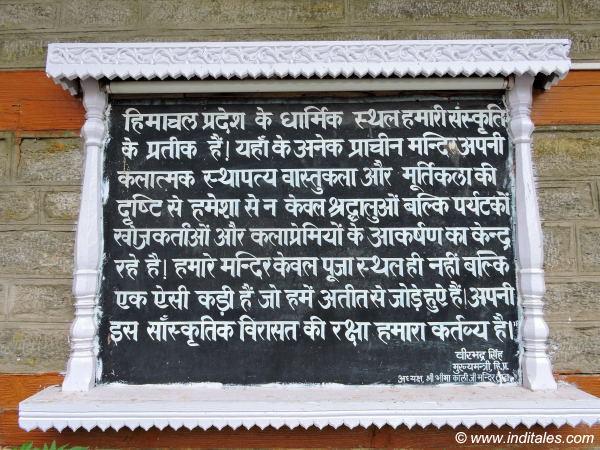 हिमाचल प्रदेश के धार्मिक स्थल हमारी संस्कृति
के प्रतीक हैं। यहाँ के अनेक प्राचीन मन्दिर अपनी
कलात्मक स्थापत्य वास्तुकला और मूर्तिकला की
दृष्टि से हमेशा से न केवल श्रद्धालुओं बल्कि पर्यटकों
खोजकर्ताओं और कलाप्रेमियों के आकर्षण का केन्द्र
रहे है। हमारे मन्दिर केवल पूजा स्थल ही नहीं बल्कि
एक ऐसी कड़ी हैं जो हमें अतीत से जोड़े हुऐ हैं। अपनी
इस साँस्कृतिक विरासत की रक्षा हमारा कर्तव्य है।
वीरभद्र सिंह
मुख्यमन्त्री, हि.प्र.
अध्यक्ष, श्री भीमा काली जी मन्दिर
© www.inditales.com